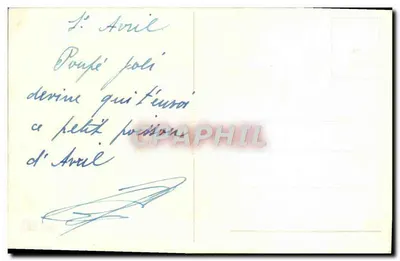 1er Avril
Poupé joli
devine qui t'envoi
ce petit poisson
d'Avril
CPAPHIL